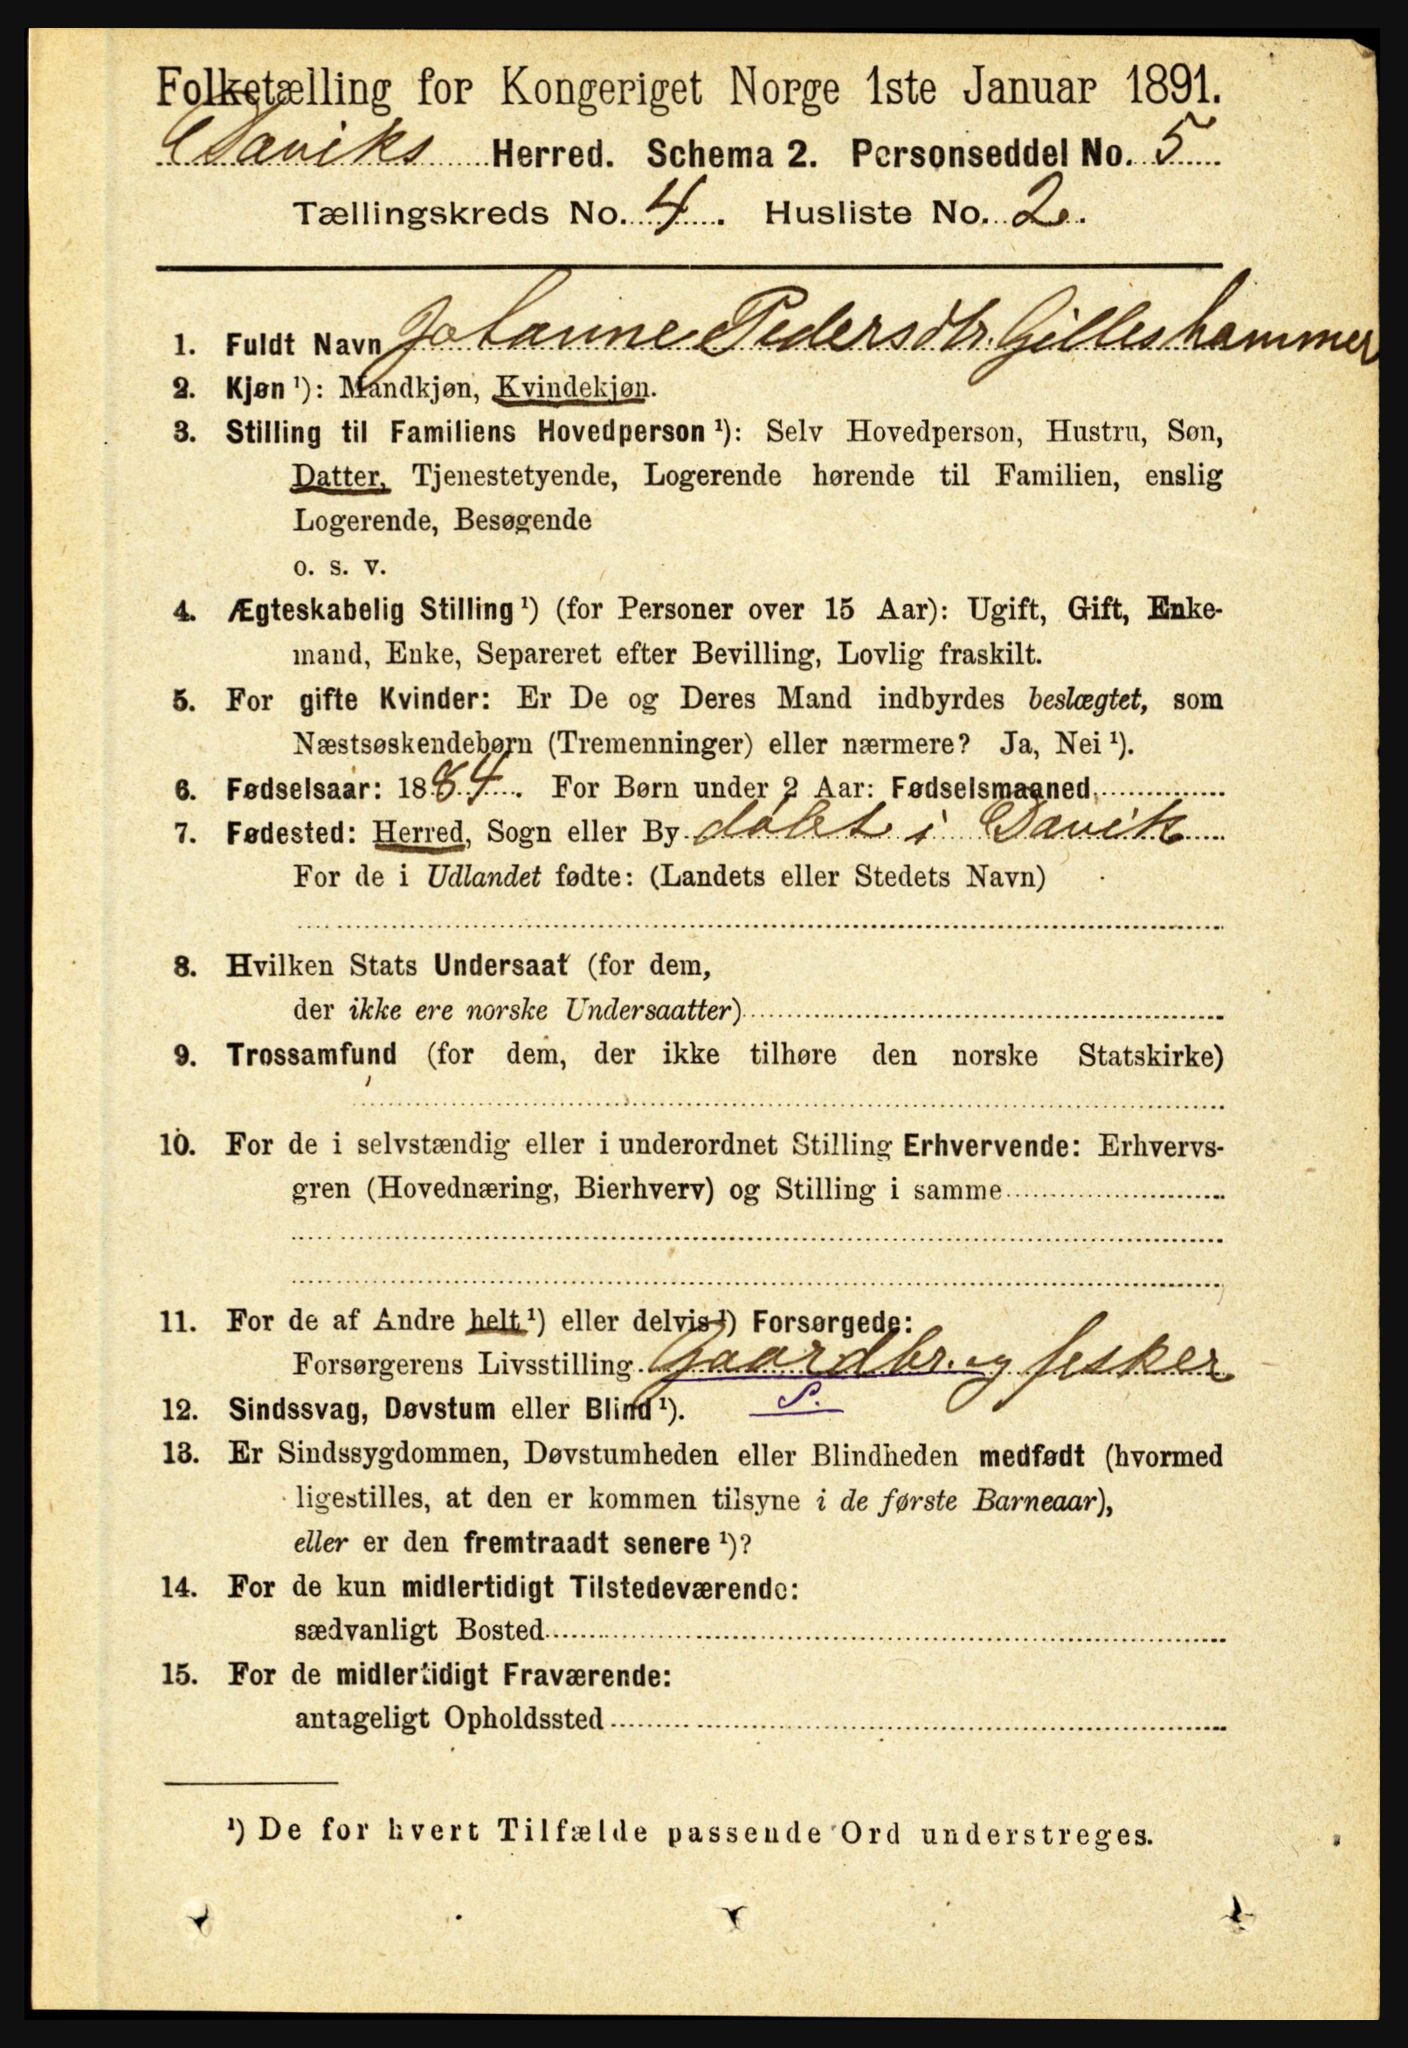 Folketælling for Kongeriget Norge 1ste Januar 1891.
Daviks Herred. Schema 2. Personseddel No. 5
Tællingskreds No. 4. Husliste No. 2.
1. Fuldt Navn Johanne Pedersdtr. Gilleshammer
2. Kjøn ¹): Mandkjøn, Kvindekjøn.
3. Stilling til Familiens Hovedperson ¹): Selv Hovedperson, Hustru, Søn,
Datter, Tjenestetyende, Logerende hørende til Familien, enslig
Logerende, Besøgende
o. s. v.
4. Ægteskabelig Stilling ¹) (for Personer over 15 Aar): Ugift, Gift, Enke-
mand, Enke, Separeret efter Bevilling, Lovlig fraskilt.
5. For gifte Kvinder: Er De og Deres Mand indbyrdes beslægtet, som
Næstsøskendebørn (Tremenninger) eller nærmere? Ja, Nei ¹).
6. Fødselsaar: 1884. For Børn under 2 Aar: Fødselsmaaned
7. Fødested: Herred, Sogn eller By i Davik
For de i Udlandet fødte: (Landets eller Stedets Navn)
8. Hvilken Stats Undersaat (for dem,
der ikke ere norske Undersaatter)
9. Trossamfund (for dem, der ikke tilhøre den norske Statskirke)
10. For de i selvstændig eller i underordnet Stilling Erhvervende: Erhvervs-
gren (Hovednæring, Bierhverv) og Stilling i samme
11. For de af Andre helt ¹) eller delvis ¹) Forsørgede:
Forsørgerens Livsstilling Gaardbr. og fisker
12. Sindssvag, Døvstum eller Blind ¹). S.
13. Er Sindssygdommen, Døvstumheden eller Blindheden medfødt (hvormed
ligestilles, at den er kommen tilsyne i de første Barneaar),
eller er den fremtraadt senere ¹)?
14. For de kun midlertidigt Tilstedeværende:
sædvanligt Bosted
15. For de midlertidigt Fraværende:
antageligt Opholdssted
¹) De for hvert Tilfælde passende Ord understreges.